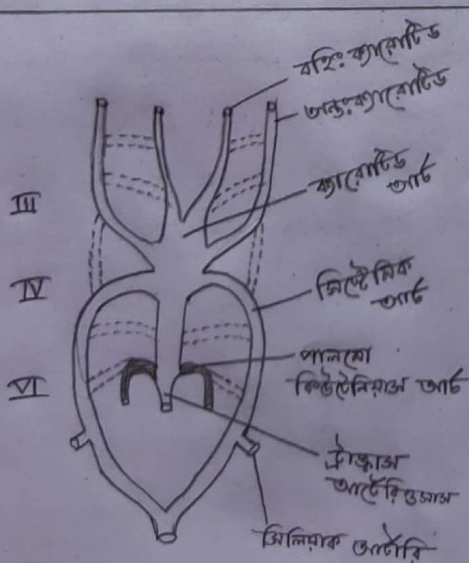 বহিঃ ক্যারোটিড
অন্তঃক্যারোটিড
ক্যারোটিড
আর্চ
III
সিস্টেমিক
আর্চ
IV
পালমো
কিউটেনিয়াস আর্চ
VI
ট্রাঙ্কাস
আর্টেরিওসাস
সিলিয়াক আর্টারি